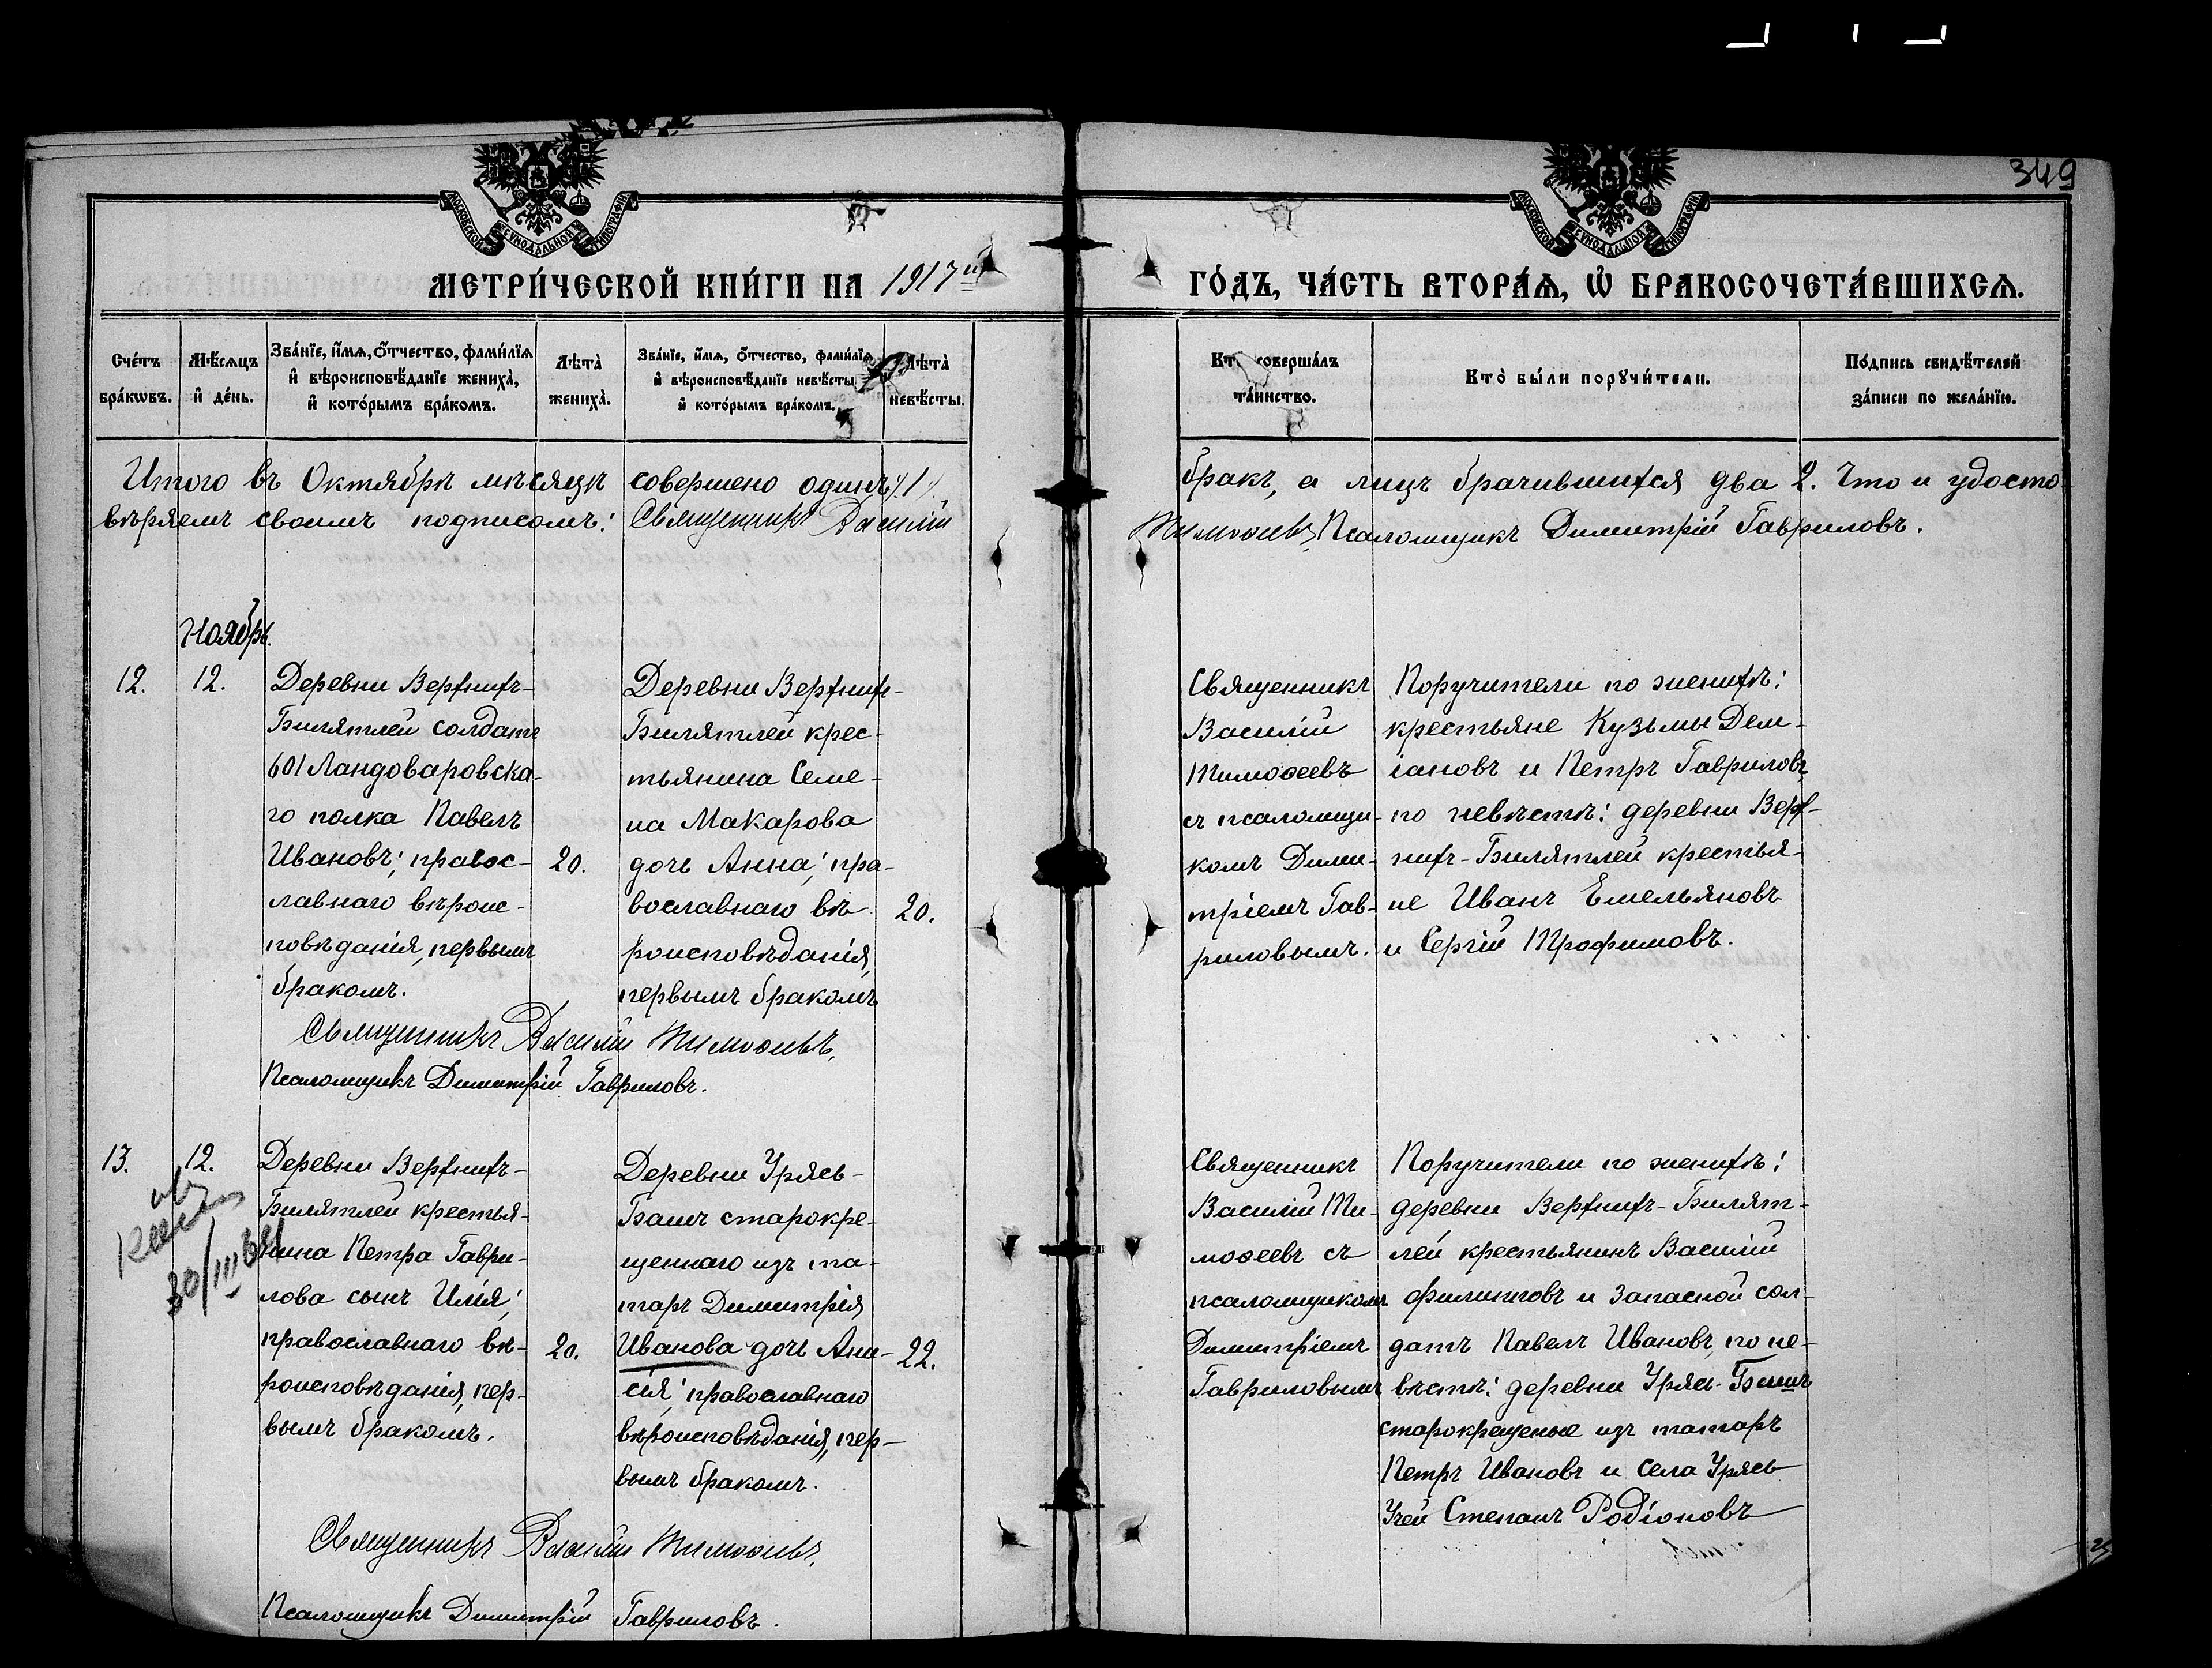 349
МОСКОВСКОЙ СѴНОДАЛЬНОЙ ТИПОГРАФІИ
МОСКОВСКОЙ СѴНОДАЛЬНОЙ ТИПОГРАФІИ
МЕТРИ́ЧЕСКОЙ КНИ́ГИ НА 1917й
ГО́ДЪ, ЧА́СТЬ ВТОРА́Ѧ, Ѽ БРАКОСОЧЕТА́ВШИХСѦ.
Сче́тъ бра́кѡвъ.
Мѣ́сѧцъ и҆ де́нь.
Зва́нїе, и҆́мѧ, ѻ҆́тчество, фами́лїѧ и҆ вѣроисповѣ́данїе жениха̀, и҆ кото́рымъ бра́комъ.
Лѣта̀ жениха̀.
Зва́нїе, и҆́мѧ, ѻ҆́тчество, фами́лїѧ и҆ вѣроисповѣ́данїе невѣ́сты и҆ кото́рымъ бра́комъ.
Лѣта̀ невѣ́сты.
Кт совершáлъ та́инство.
Кто̀ бы́ли порꙋчи́тели.
По́дпись свидѣ́телей за́писи по жела́нїю.
Итого въ Октябрѣ мѣсяцѣ совершено одинъ /1/
бракъ, а лицъ брачившихся два 2. Что и удосто
вѣряемъ своимъ подписомъ: Священникъ Василій
Тимоѳеевъ, Псаломщикъ Димитрій Гавриловъ.
Ноябрь.
12.
12.
Деревни Верхнихъ-
Билятлей солдатъ
601 Ландоваровска-
го полка Павелъ
Ивановъ; правос-
лавнаго вѣроис-
повѣданія, первымъ
бракомъ.
20.
Деревни Верхних-
Билятлей крес-
тьянина Семе-
на Макарова
дочь Анна; пра-
вославнаго вѣ-
роисповѣданія,
первымъ бракомъ
20.
Священникъ
Василій
Тимоѳеевъ
съ псаломщи-
комъ Дими-
тріемъ Гав-
риловымъ.
Поручители по женихѣ:
крестьяне Кузьмы Дем-
іановъ и Петръ Гавриловъ
по невѣстѣ: деревни Верх-
нихъ-Билятлей крестья-
не Иванъ Емельяновъ
и Сергій Трофимовъ.
Священникъ Василій Тимоѳеевъ,
Псаломщикъ Димитрій Гавриловъ.
13.
12.
30/III
Деревни Верхнихъ-
Билятлей крестья-
нина Петра Гаври-
лова сынъ Илія;
православнаго вѣ-
роисповѣданія, пер-
вымъ бракомъ.
20.
Деревни Урясь-
Башъ старокре-
щеннаго изъ та-
таръ Димитрія
Иванова дочь Ани-
сія; православнаго
вѣроисповѣданія, пер-
вымъ бракомъ.
22.
Священникъ
Василій Ти-
моѳеевъ съ
псаломщикомъ
Димитріемъ
Гавриловымъ
Поручители по женихѣ:
деревни Верхнихъ-Билят-
лей крестьянинъ Василій
Филипповъ и запасной сол-
датъ Павелъ Ивановъ, по не-
вѣстѣ: деревни Урясь-Башъ
старокрещеные изъ татаръ
Петръ Ивановъ и села Урясь
Учей Степанъ Родіоновъ
Священникъ Василій Тимоѳеевъ,
Псаломщикъ Димитрій Гавриловъ.